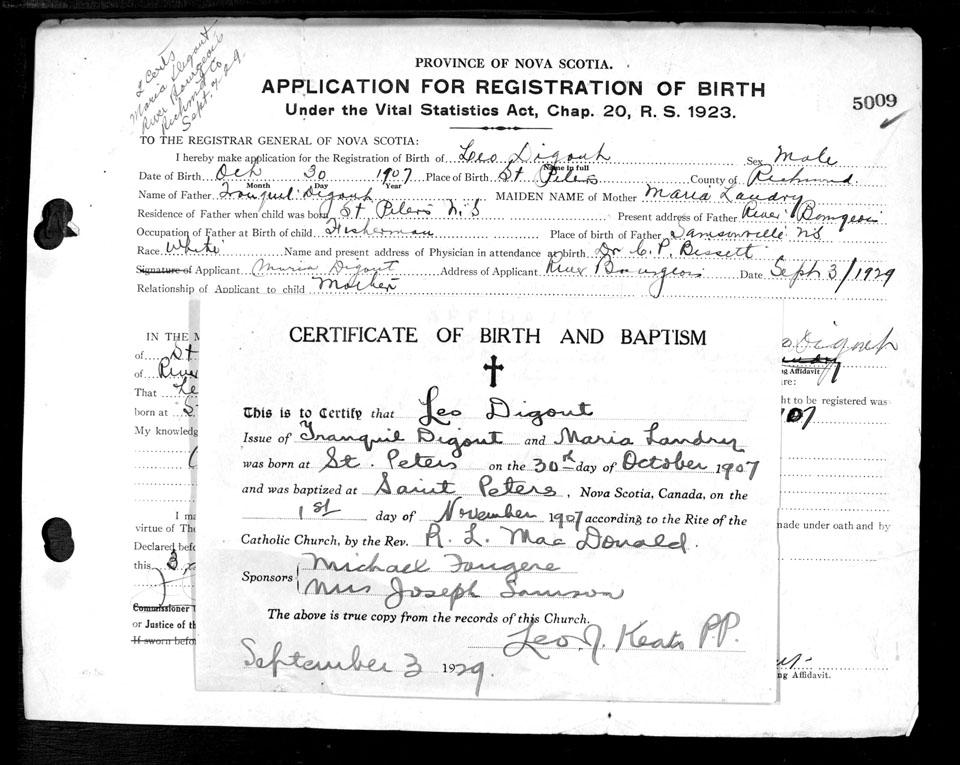 2 Certs
Maria Digout
River Bourgeois
Richm'd Co
Sept. 4 29.
PROVINCE OF NOVA SCOTIA.
APPLICATION FOR REGISTRATION OF BIRTH
Under the Vital Statistics Act, Chap. 20, R. S. 1923.
5009
TO THE REGISTRAR GENERAL OF NOVA SCOTIA:
I hereby make application for the Registration of Birth of Leo Digout Sex Male
Name in full
Date of Birth Oct 30 1907 Place of Birth St Peters County of Richmond
Month Day Year
Name of Father Tranquil Digout MAIDEN NAME of Mother Maria Landry
Residence of Father when child was born St. Peters N.S Present address of Father River Bourgeois
Occupation of Father at Birth of child Fisherman Place of birth of Father Samsonville NS
Race White Name and present address of Physician in attendance at birth Dr. C. P. Bissett
Signature of Applicant Maria Digout Address of Applicant River Bourgeois Date Sept 3/1929
Relationship of Applicant to child Mother
IN THE M
of St
of River
That Le
born at S
My knowledg
Digout
ng Affidavit
re:
ht to be registered was
07
CERTIFICATE OF BIRTH AND BAPTISM
This is to Certify that Leo Digout
Issue of Tranquil Digout and Maria Landry
was born at St. Peters on the 30th day of October 1907
and was baptized at Saint Peters, Nova Scotia, Canada, on the
1st day of November 1907 according to the Rite of the
Catholic Church, by the Rev. R. L. Mac Donald.
Sponsors Michael Fougere
Mrs Joseph Samson
The above is true copy from the records of this Church.
Leo. J. Keats P.P.
September 3 1929.
I ma
virtue of The
Declared befo
this 3
Commissioner
or Justice of th
If sworn befo
made under oath and by
ng Affidavit.